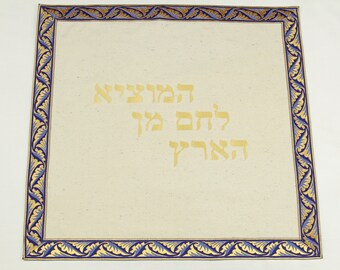 המוציא
לחם מן
הארץ